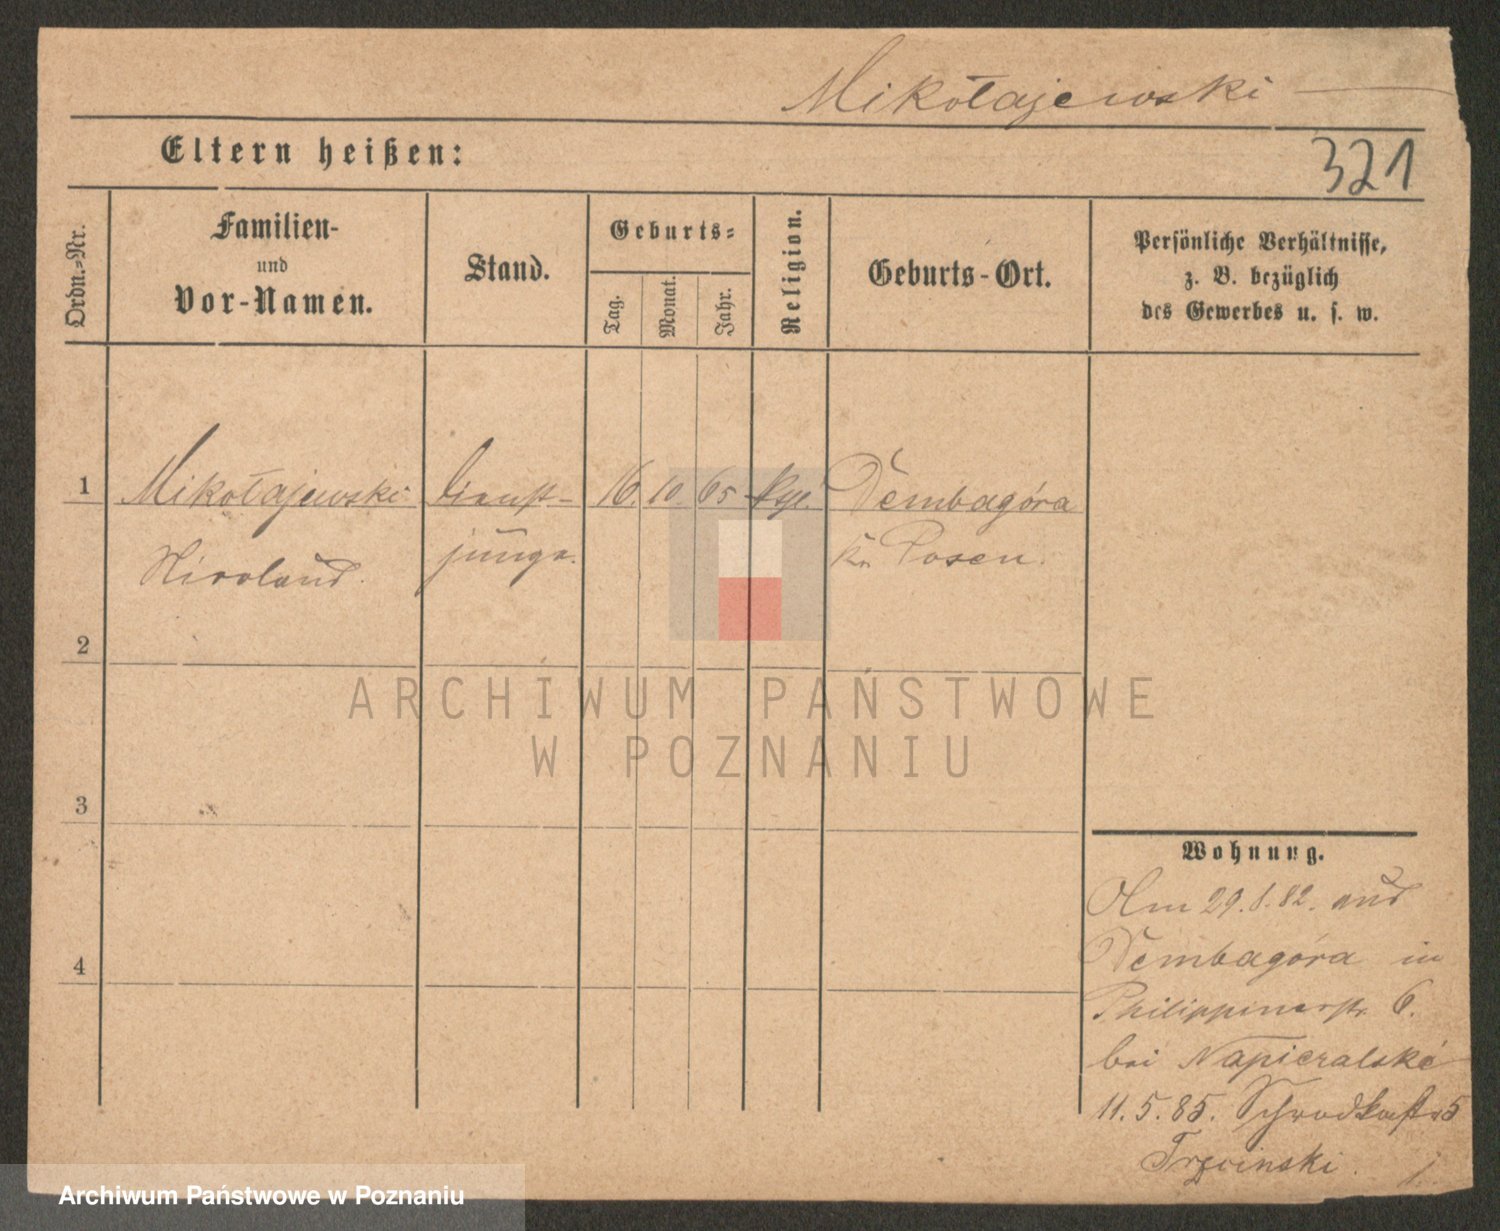 Mikołajewski
Eltern heißen:
321
Ordn.-Nr.
Familien-
und
Vor-Namen.
Stand.
Geburts-
Tag.
Monat.
Jahr.
Religion.
Geburts-Ort.
Persönliche Verhältnisse,
z. B. bezüglich
des Gewerbes u. s. w.
1
Mikołajewski
Dienst-
junge.
16. 10. 65
Dembagóra
Kr. Posen.
2
3
4
ARCHIWUM PAŃSTWOWE
W POZNANIU
Wohnung.
Am 29. 82. aus
Dembagóra in
Philippinerstr. 6.
bei Napieralski
11. 5. 85. 5
Archiwum Państwowe w Poznaniu